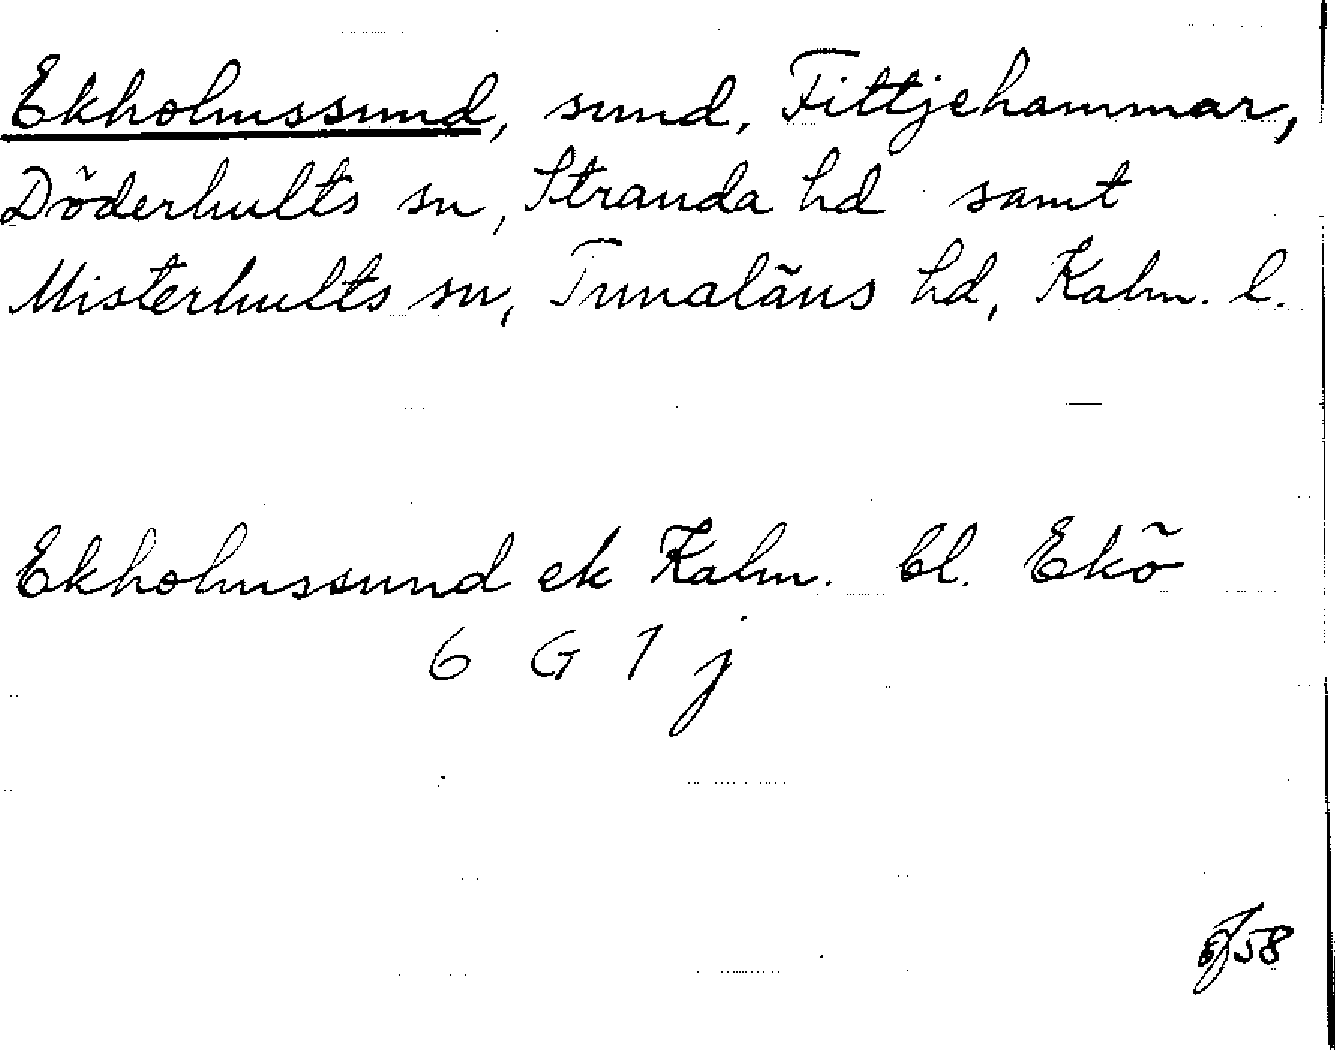 Ekholmssund, sund, Fittjehammar,
Döderhults sn, Stranda hd samt
Misterhults sn, Tunaläns hd, Kalm. l.
Ekholmssund ek Kalm. bl. Ekö
6 G 1 j
58